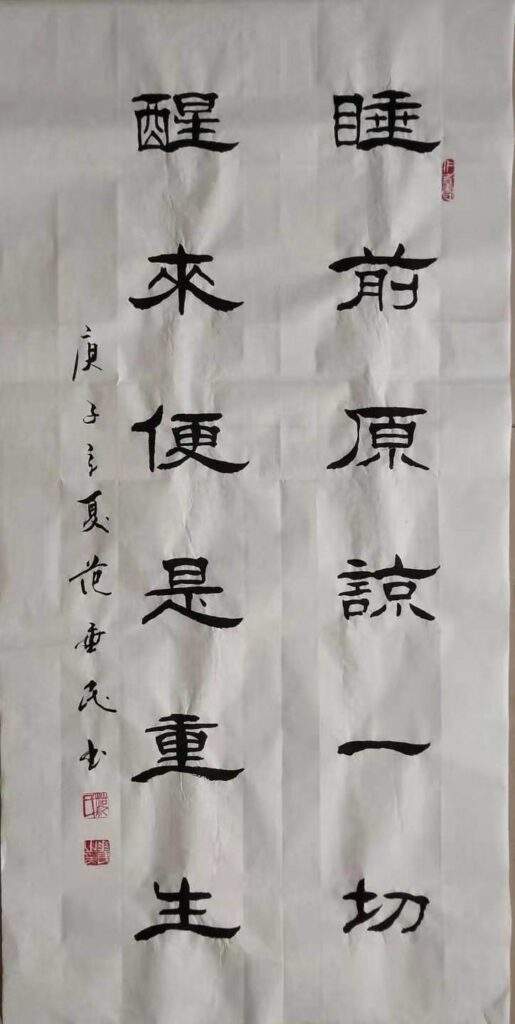 睡前原諒一切
醒來便是重生
庚子之夏范垂民书